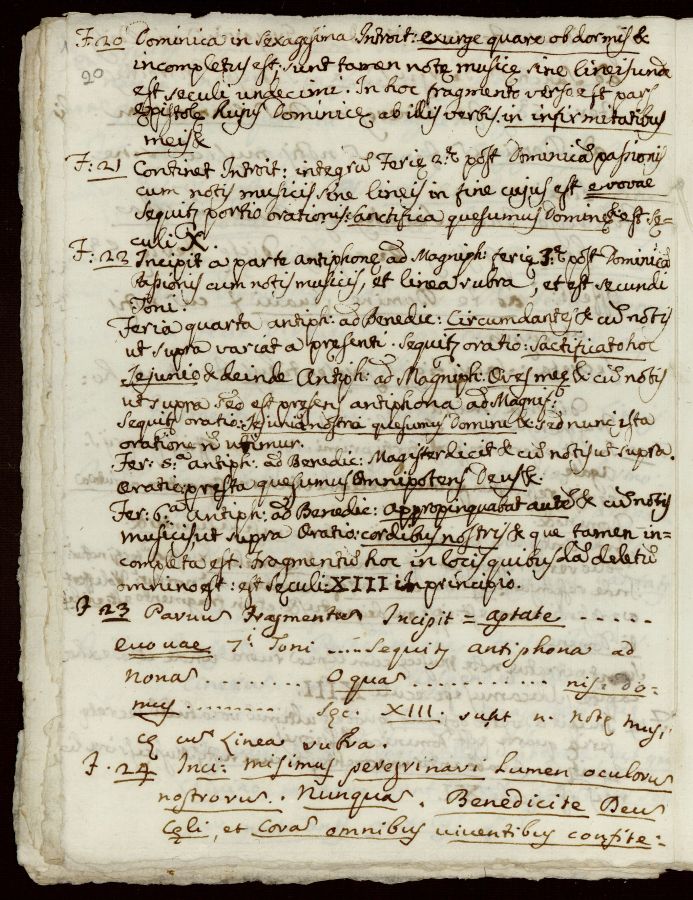 F. 20 Dominica in sexagesima Introit: exurge quare obdormis &
20 incompletus est; sunt tamen notę musicę sine lineis unde
est seculi undecimi. In hoc fragmento verso est pars
Epistolę hujus Dominicę ab illis verbis. in infirmitatibus
meis &
F: 21 Continet Introit: integrũ Ferię 2.ę post Dominicã passionis
cum notis musicis sine lineis in fine cujus est evovae
sequitʒ portio orationis: sanctifica quesumus Domine & est Sę=
culi X.
F: 22 Incipit a parte antiphonę ad Magniph: ferię 3.ę post Dominicã
Passionis cum notis musicis, et linea rubra, et est secundi
Toni.
Feria quarta antiph: ad Benedic: Circumdantes & cũ notis
ut supra variat a presenti. Sequitʒ oratio: Sactificato hoc
Jejunio & deinde Antiph: ad Magniph: Oves meę & cũ notis
ut supra sed est presens antiphona ad Magnif:
Sequitʒ oratio: Jejunia nostra quesumus Domine & sed nunc ista
oratione nõ utimur.
Fer: 5.ª antiph: ad Benedic: Magister dicit & cũ notis ut supra.
Oratio: presta quesumus Omnipotens Deus &.
Fer: 6.ª Antiph: ad Benedic: appropinquabat autẽ & cũ notis
musicis ut supra Oratio: cordibus nostris & que tamen in=
completa est. Fragmentũ hoc in locis quibusdã deletũ
omnino est: est Sęculi XIII in principio.
F 23 Parvus Fragmentus Incipit = aptate - - - - -
evovae 7.i Toni ..... Sequitʒ antiphona ad
Nonas ........ O quas ............ nis: do=
mus ........ Sęc. XIII. sunt n. notę musi
cę cũ Linea rubra.
F. 24 Inci: misimus peregrinari Lumen oculorus
nostrorus. Nunquas. Benedicite Deus
Cęli, et Coras omnibus viventibus confite=